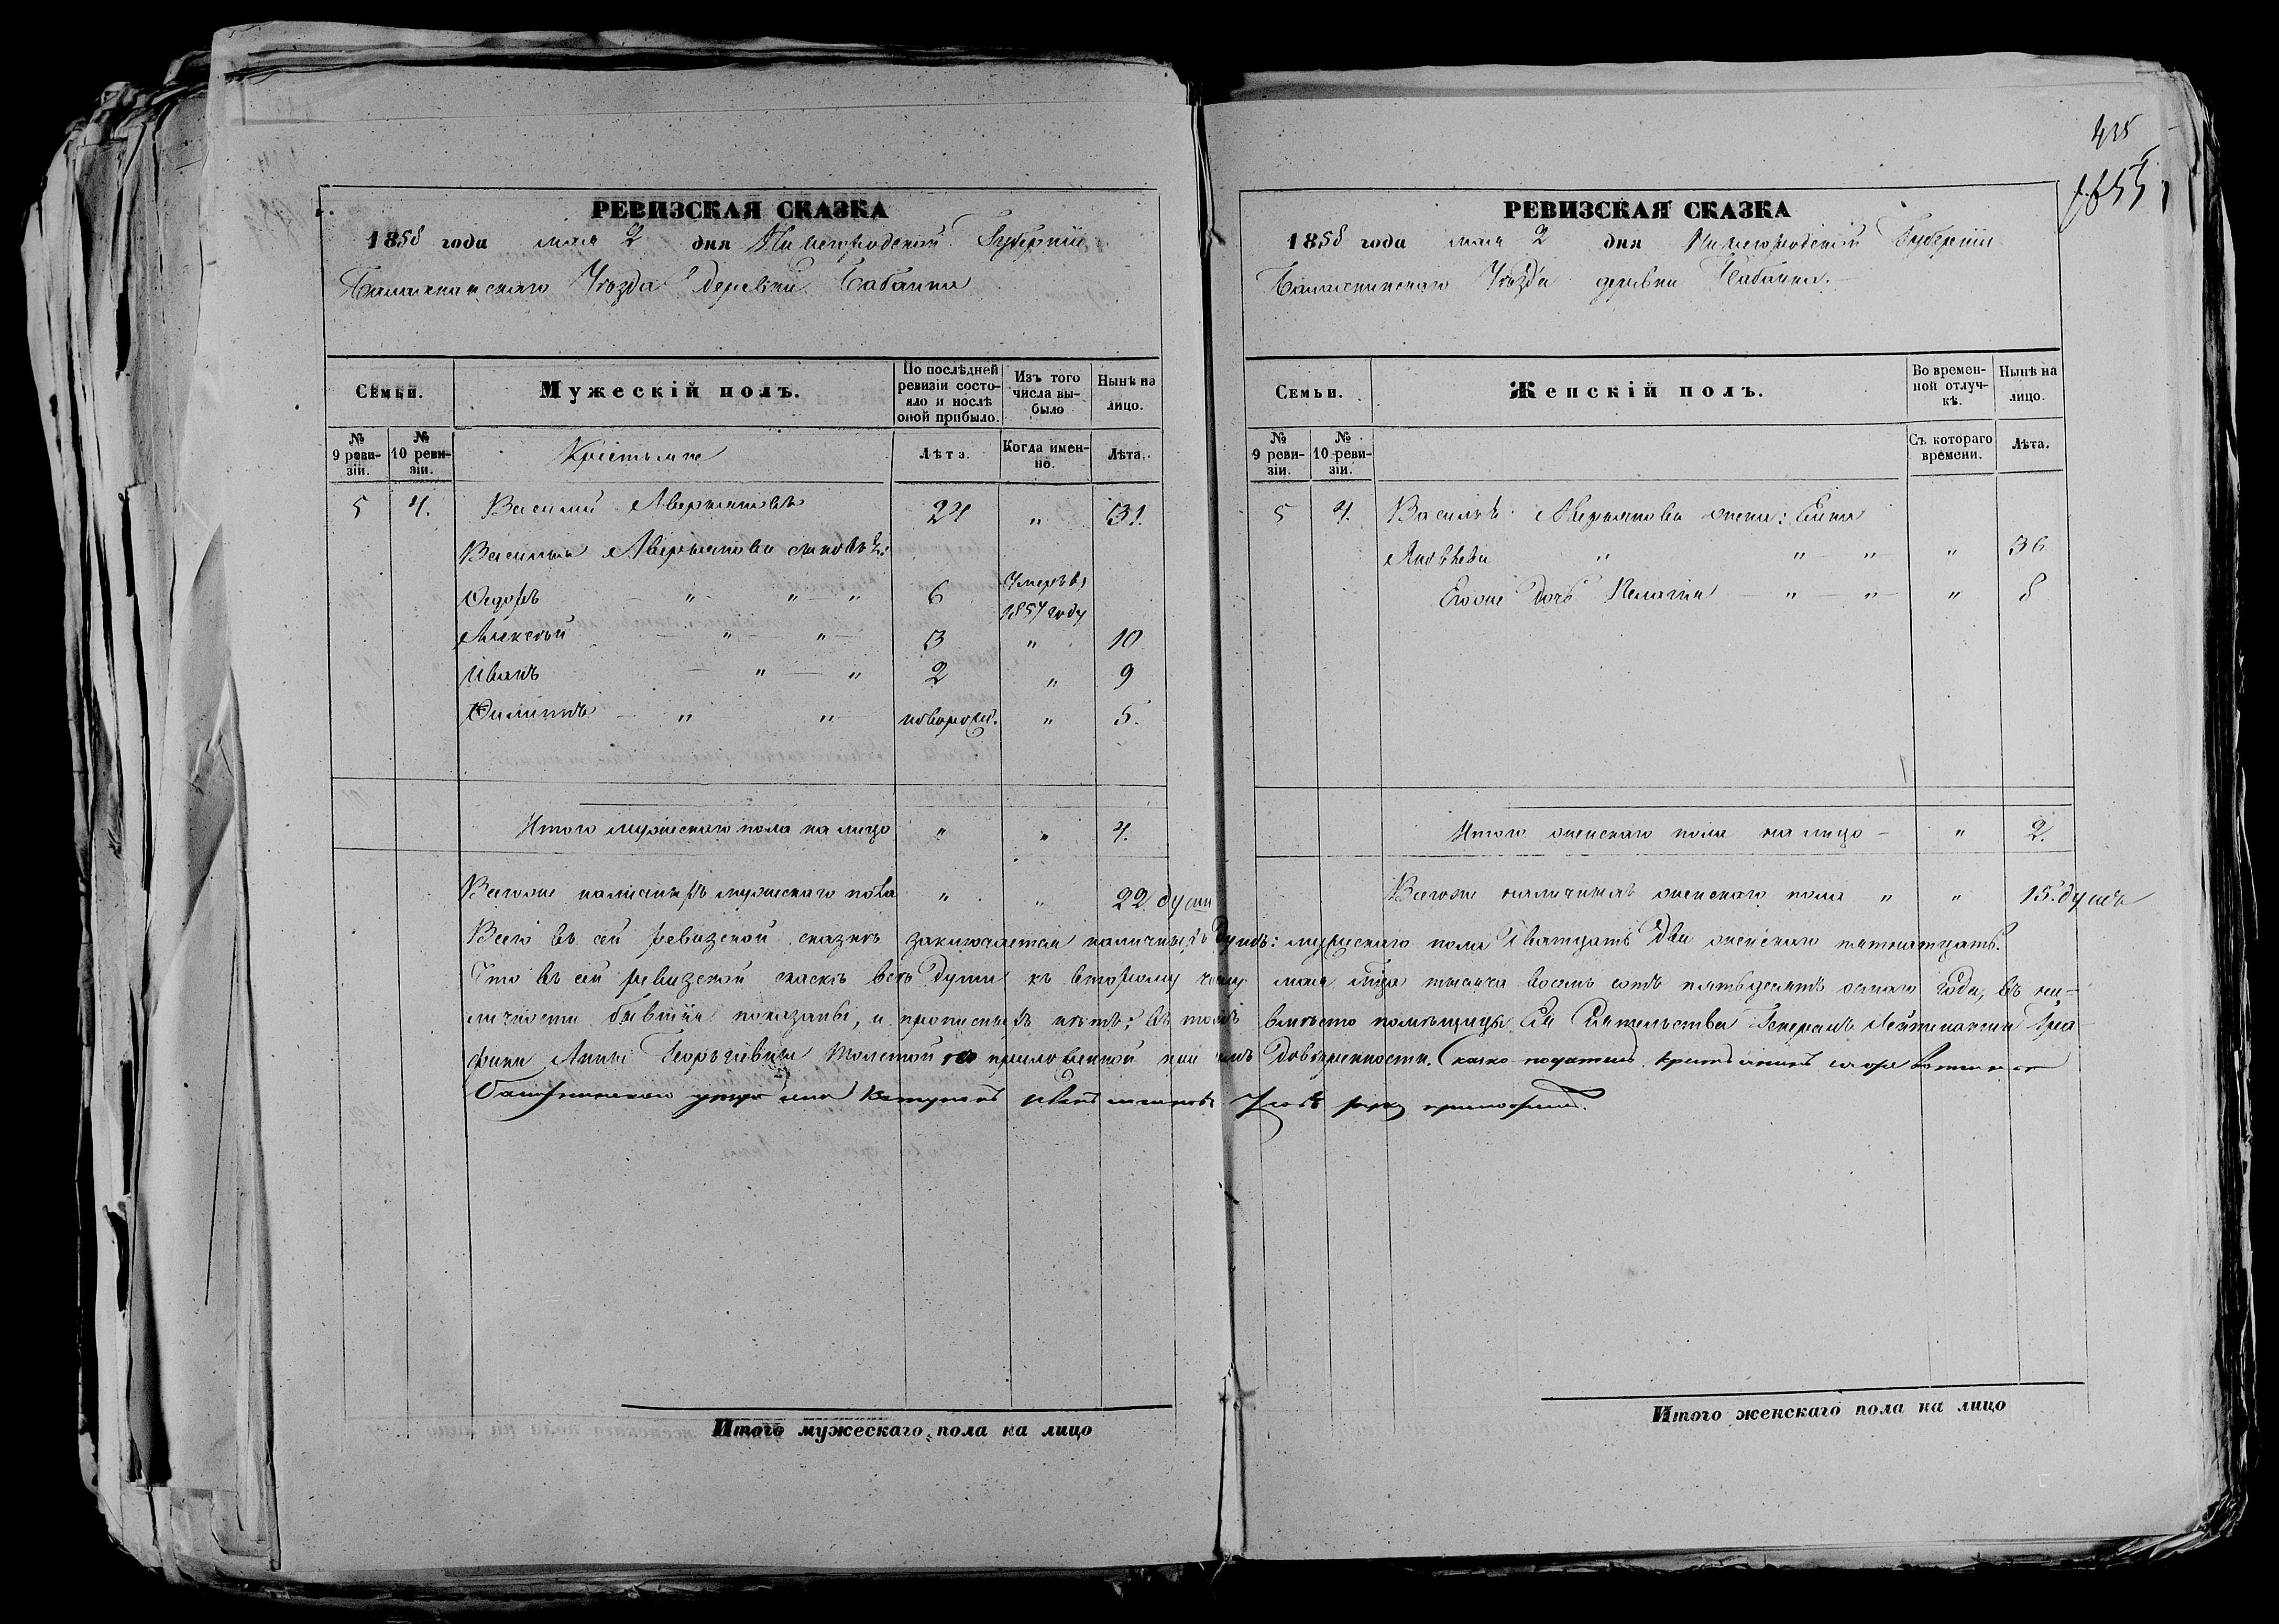 435
1655
РЕВИЗСКАЯ СКАЗКА
1858 года мая 2 дня Нижегородской Губерніи
Балахнинскаго Уѣзда деревни Бабанки
Семьи.
Мужескій полъ.
По послѣдней ревизіи состояло и послѣ оной прибыло.
Изъ того числа выбыло
Нынѣ на лицо.
№ 9 ревизіи.
№ 10 ревизіи.
Крестьяне
Лѣта.
Когда именно.
Лѣта.
5 4. Василий Аверьяновъ 24 " 31.
Василья Аверьянова сыновья:
Федоръ " " " 6 Умеръ въ 1857 году
Алексѣй " " 3 " 10
Иванъ " " 2 " 9
Филиппъ " " новорож. " 5.
Итого мужескаго пола на лицо " " 4.
Всегоже наличныхъ мужескаго пола " " 22 души
РЕВИЗСКАЯ СКАЗКА
1858 года мая 2 дня Нижегородской Губерніи
Балахнинскаго Уѣзда деревни Бабанки.
Семьи.
Женскій полъ.
Во временной отлучкѣ.
Нынѣ на лицо.
№ 9 ревизіи.
№ 10 ревизіи.
Съ котораго времени.
Лѣта.
5 4. Василья Аверьянова жена: Елена
Яковлева " " " " 36
Егоже дочь Пелагия " " " 8
Итого женскаго пола на лицо " 2.
Всегоже наличныхъ женскаго пола " " 15. душъ
Всего въ сей ревизской сказкѣ заключается наличныхъ душъ: мужескаго пола Дватцать Две женскаго пятнатцать.
Что въ сей ревизской сказкѣ всѣ души къ второму числу мая мѣца тысяча восемь сотъ пятьдесятъ осмаго года, въ на=
личности бывшія показаны, и прописныхъ нѣтъ; въ томъ вмѣсто помѣщицы Ея Сиятельства Генералъ Лейтенантши Гра
фини Анны Георгіевны Толстой по приложенной при семъ Довѣренности.
Итого мужескаго пола на лицо
Итого женскаго пола на лицо